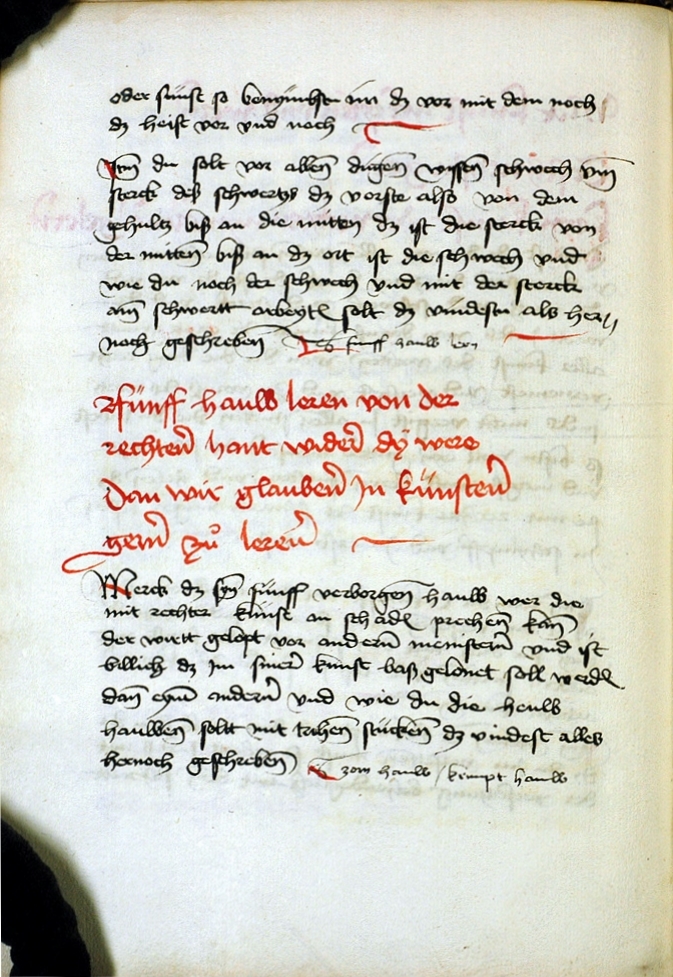 oder sünst so benymbstu im dz vor mit dem noch
dz heist vor vnd noch
Itm̄ du solt vor allen̄ dingen̄ wissen̄ schwech vnd
sterck deß schwertys dz vorste also von dem
gehultz biß an die mitten dz ist die sterck von
der mitten̄ biß an dz ort ist die schwech vnd
wie du noch der schwech vnd mit der sterck
am̄ schwertt arbeytn̄ solt dz vindestu als her
noch geschreben̄ Dÿ fünff hauw lern
Fünff hauw leren von der
rechten̄ hant wider̄ dÿ were
Dan wir glauben̄ In künsten̄
gern̄ zů leren̄
Merck dz syn̄ fünff verborgen̄ hauw wer die
mit rechter künst an schadn̄ prechen̄ kan̄
der wirtt gelopt vor andern̄ meinstern̄ vnd ist
billich dz im siner̄ kunst baß gelonet soll werdn̄
dan̄ eym̄ andern̄ vnd wie du die heuw
hauwen̄ soltt mit irhen̄ stücken̄ dz vindest alles
hernoch geschreben̄ zorn hauw / krumpt hauw